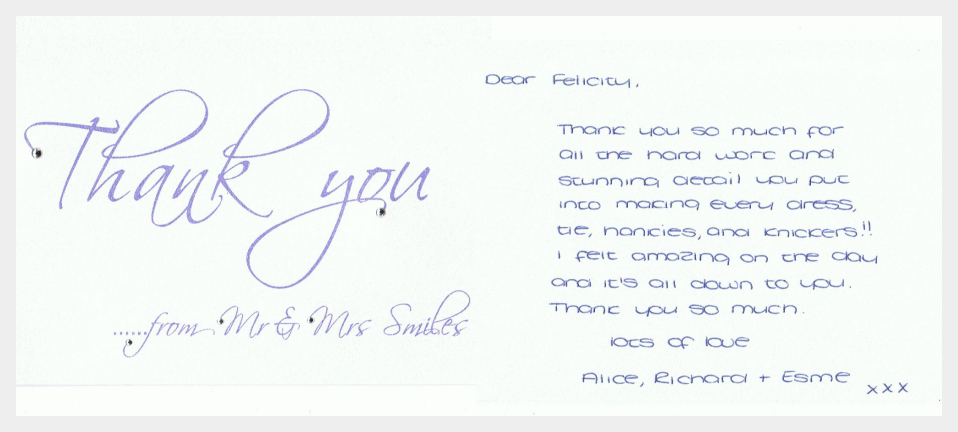 Thank you
......from Mr & Mrs Smiles
Dear Felicity,
Thank you so much for
all the hard work and
stunning detail you put
into making every dress,
tie, hankies, and knickers!!
I felt amazing on the day
and it's all down to you.
Thank you so much.
lots of love
Alice, Richard + Esme xxx